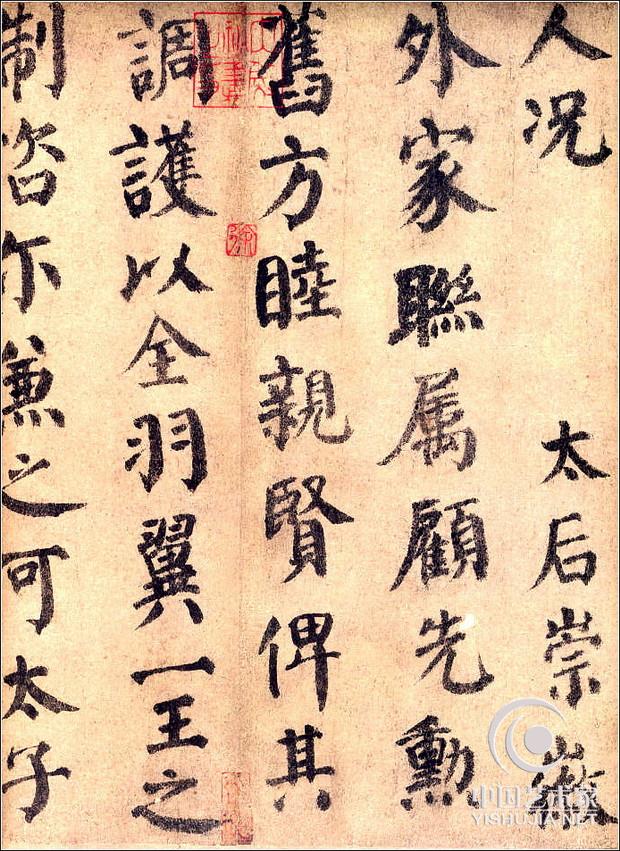 人况 太后崇徽
外家聯属顧先勳
舊方睦親賢俾其
調護以全羽翼一王之
制咨尔兼之可太子
中国艺术家
YISHUJIA.NET